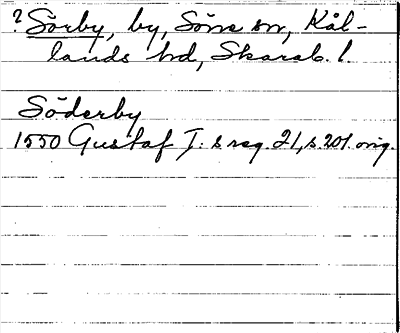 ? Sörby, by, Söne sn, Kål-
lands hd, Skarab. l.
Söderby
1550 Gustaf I:s reg. 21, s. 201. orig.